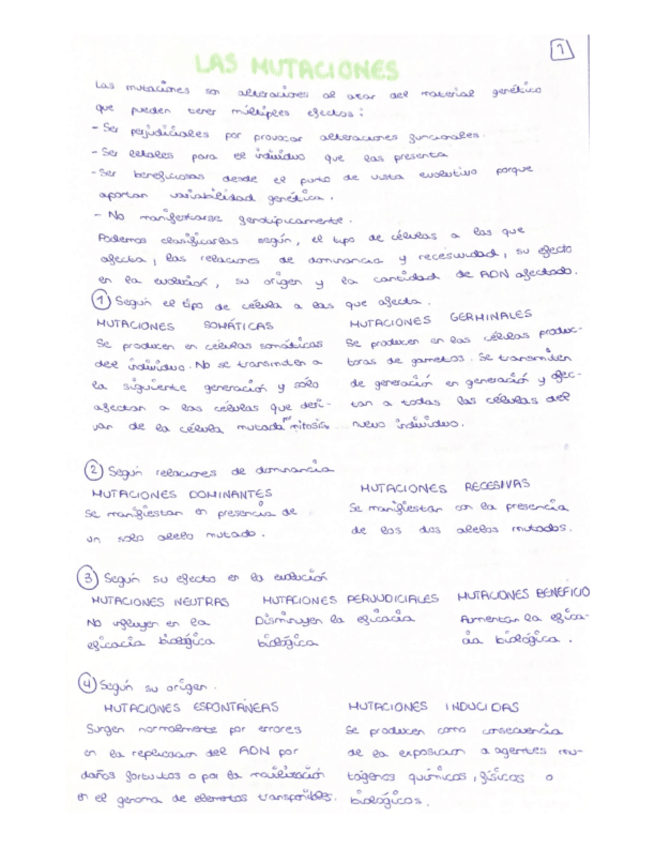 1
LAS MUTACIONES
Las mutaciones son alteraciones al azar del material genético
que pueden tener múltiples efectos:
- Ser perjudiciales por provocar alteraciones funcionales.
- Ser letales para el individuo que las presenta
- Ser beneficiosas desde el punto de vista evolutivo porque
aportan variabilidad genética.
- No manifestarse genotípicamente.
Podemos clasificarlas según, el tipo de células a las que
afecta, las relaciones de dominancia y recesividad, su efecto
en la evolución, su origen y la cantidad de ADN afectado.
1 Según el tipo de célula a las que afecta.
MUTACIONES SOMÁTICAS
Se producen en células somáticas
del individuo. No se transmiten a
la siguiente generación y sólo
afectan a las células que deri-
van de la célula mutada por mitosis.
MUTACIONES GERMINALES
Se producen en las células produc-
toras de gametos. Se transmiten
de generación en generación y afec-
tan a todas las células del
nuevo individuo.
2 Según relaciones de dominancia
MUTACIONES DOMINANTES
Se manifiestan en presencia de
un solo alelo mutado.
MUTACIONES RECESIVAS
Se manifiestan con la presencia
de los dos alelos mutados.
3 Según su efecto en la evolución
MUTACIONES NEUTRAS
No influyen en la
eficacia biológica
MUTACIONES PERJUDICIALES
Disminuyen la eficacia
biológica
MUTACIONES BENEFICIO
Aumentan la efica-
cia biológica.
4 Según su origen.
MUTACIONES ESPONTÁNEAS
Surgen normalmente por errores
en la replicación del ADN por
daños fortuitos o por la movilización
en el genoma de elementos transponibles.
MUTACIONES INDUCIDAS
Se producen como consecuencia
de la exposición a agentes mu-
tágenos químicos, físicos o
biológicos.